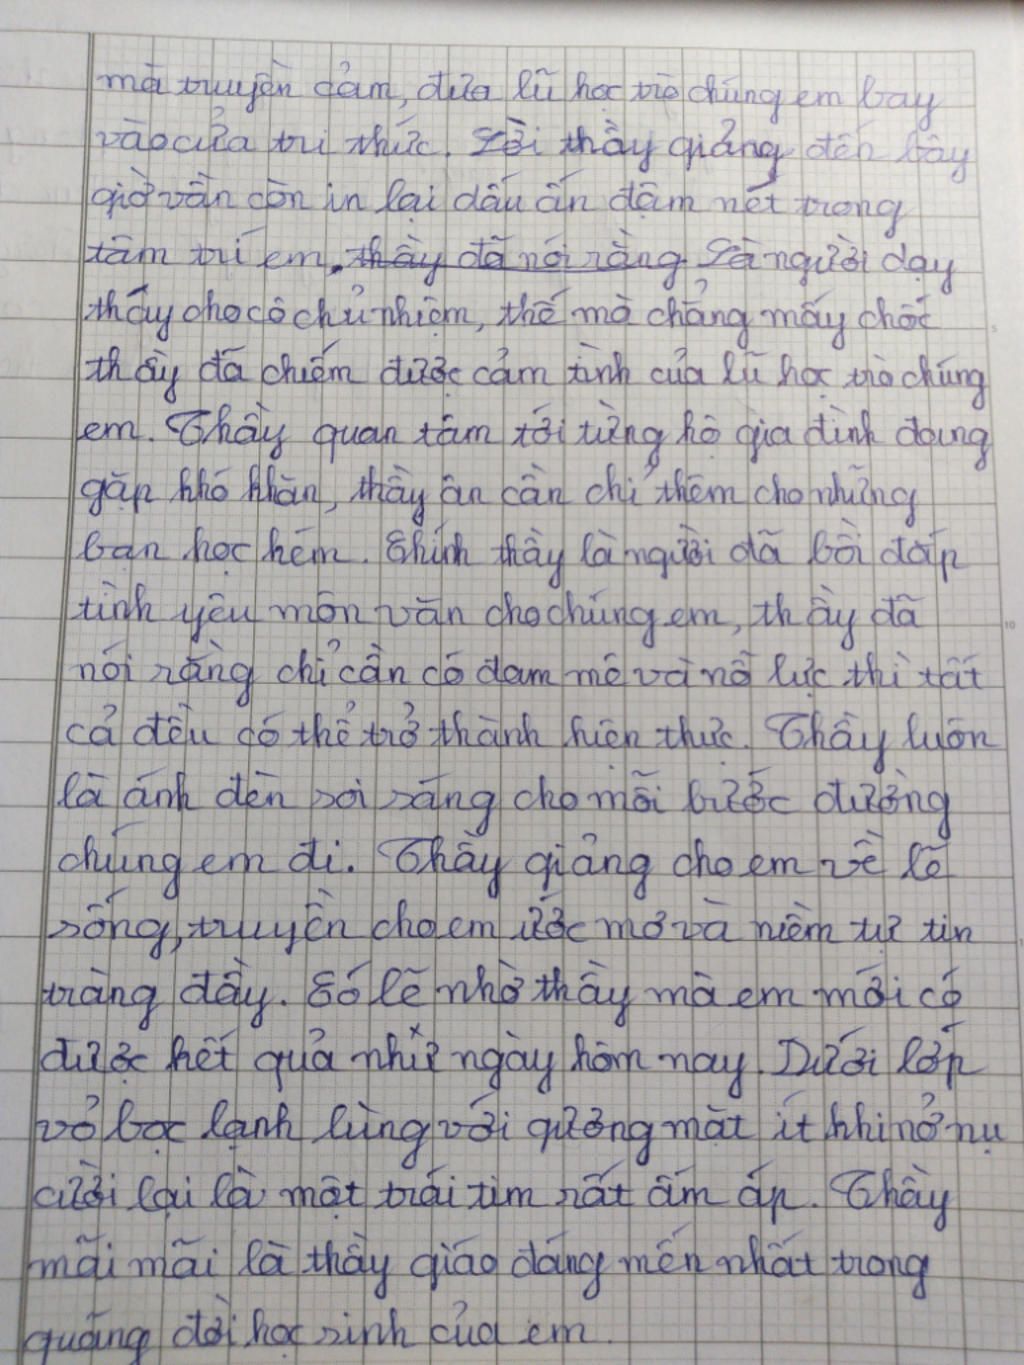 mà truyền cảm, đưa lũ học trò chúng em bay
vào cửa tri thức. Lời thầy giảng đến bây
giờ vẫn còn in lại dấu ấn đậm nét trong
tâm trí em. thầy đã nói rằng Là người dạy
thấy cho cô chủ nhiệm, thế mà chẳng mấy chốc
thầy đã chiếm được cảm tình của lũ học trò chúng
em. Thầy quan tâm tới từng hộ gia đình đang
gặp khó khăn, thầy ân cần chỉ thêm cho những
bạn học kém. Chính thầy là người đã bồi đắp
tình yêu môn văn cho chúng em, thầy đã
nói rằng chỉ cần có đam mê và nỗ lực thì tất
cả đều có thể trở thành hiện thực. Thầy luôn
là ánh đèn soi sáng cho mỗi bước đường
chúng em đi. Thầy giảng cho em về lẽ
sống, truyền cho em ước mơ và niềm tự tin
tràng đầy. Có lẽ nhờ thầy mà em mới có
được kết quả như ngày hôm nay. Dưới lớp
vỏ bọc lạnh lùng với gương mặt ít khi nở nụ
cười lại là một trái tim rất ấm áp. Thầy
mãi mãi là thầy giáo đáng mến nhất trong
quãng đời học sinh của em.